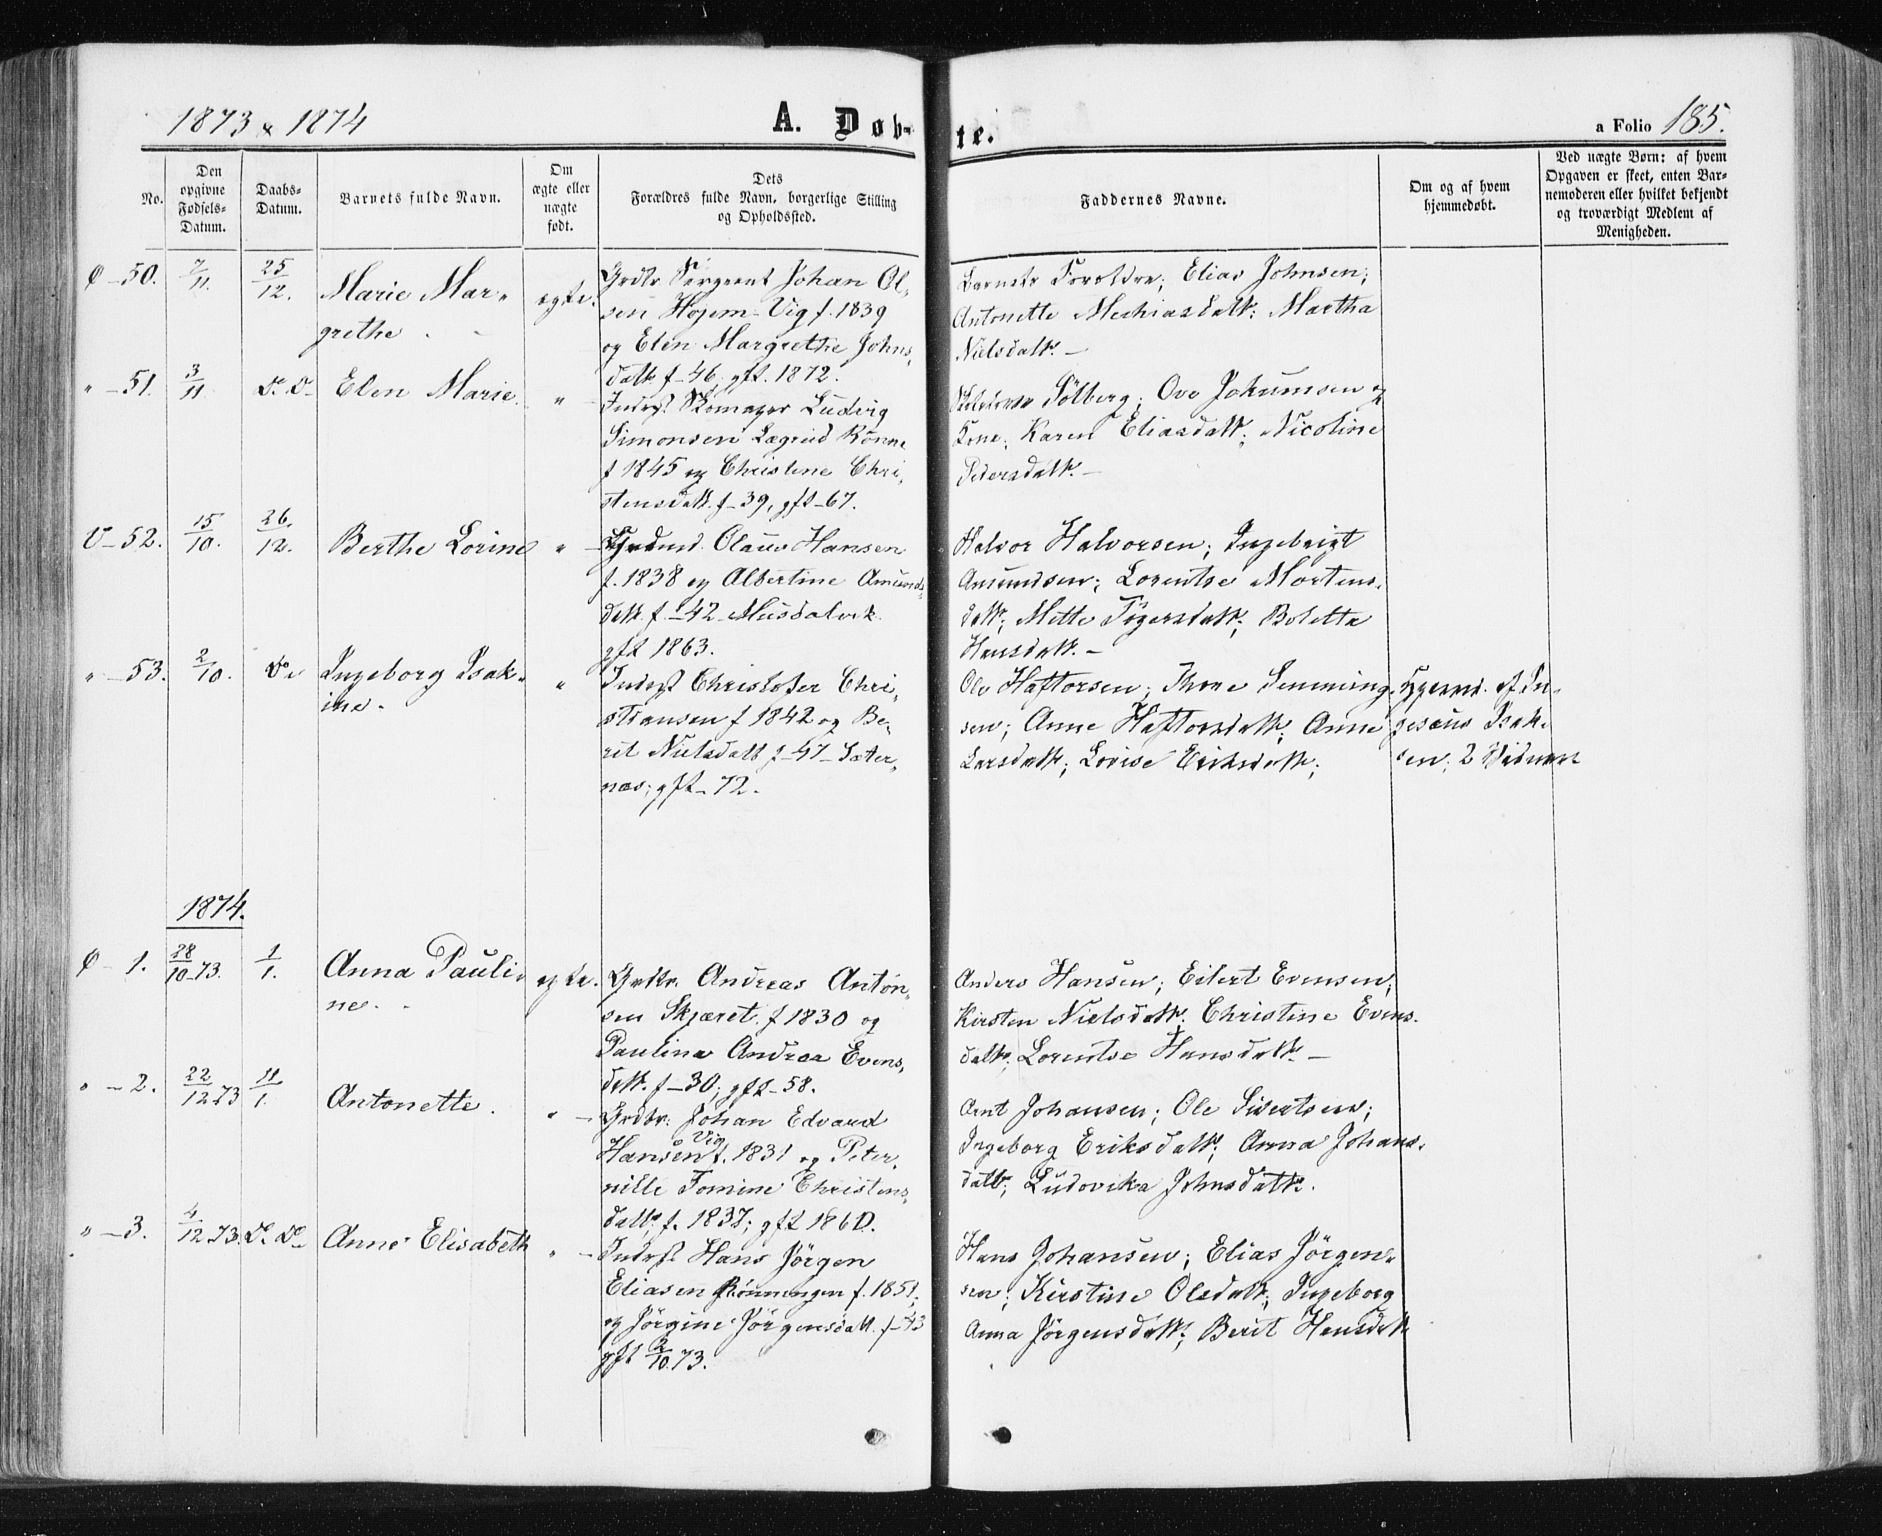 1873 & 1874
A. Døb-
te.
a Folio 185.
No.
Den
opgivne
Fødsels-
Datum.
Daabs-
Datum.
Barnets fulde Navn.
Om
ægte eller
uægte
født.
Dets
Forældres fulde Navn, borgerlige Stilling
og Opholdssted.
Faddernes Navne.
Om og af hvem
hjemmedøbt.
Ved uægte Børn: af hvem
Opgaven er skeet, enten Bar-
nemoderen eller hvilket bekjendt
og troværdigt Medlem af
Menigheden.
50.
7/11.
25/12.
Marie Mar-
grethe
ægte.
Grdbr Sergeant Johan Ol-
sen Hojem-Vig f. 1839
og Elen Margrethe Johns-
datt. f-46, gft. 1872.
Barnets Forældre; Elias Johnsen;
Antonette Mechiasdatt; Martha
Nielsdatt. -
" - 51.
3/11
Do Do
Elen Marie
"
Inderst Skomager Ludvig
Simonsen Lægreid Rönne
f 1845 og Christine Chri-
stensdatt. f-39, gft-67.
Sölberg; Ove Jokumsen og
Kone; Karen Eliasdatt; Nicoline
Petersdatt. -
V-52.
15/10.
26/12.
Berthe Lorine
"
Olaus Hansen
f. 1838 og Albertine Amunds-
datt. f-42 Musdalvik
gft 1863.
Halvor Halvorsen; Ingebrigt
Amundsen; Lorentse Mortens-
datt; Mette Tögersdatt; Boletta
Hansdatt. -
" - 53.
2/10.
Do
Ingeborg Isak-
ine.
"
Inderst Christofer Chri-
stiansen f 1842 og Be-
ret Nielsdatt f-47- Sæter-
næs; gft-72.
Ole Haftorsen; Thore Simming-
sen; Anne Haftorsdatt; Anne
Larsdatt; Lovise Eriksdatt;
Hjemmd. af In-
gesæus Isak-
sen; 2 Vidner
1874.
1.
28/10-73.
1/1.
Anna Pauli-
ne.
ægte.
Grdbr. Andreas Anton-
sen Skjæret f 1830 og
Paulina Andrea Evens-
datt. f-30; gft-58.
Anders Hansen; Eilert Evensen;
Kirsten Nielsdatt; Christine Evens-
datt; Lorentse Hansdatt -
" - 2.
22/12 73
11/1.
Antonette.
" -
Grdbr: Johan Edvard
Hansen Vig f. 1831 og Peter-
nille Tomine Christens-
datt. f. 1837; gft 1860.
Arnt Johansen; Ole Sivertsen;
Ingeborg Eriksdatt; Anna Johans-
datt; Ludovika Johnsdatt.
" - 3.
4/12 73.
Do Do
Anne Elisabeth
" -
Inderst Hans Jörgen
Eliasen Rönningen f. 1851;
og Jörgine Jörgensdatt. f-43
gft 2/10.73.
Hans Johansen; Elias Jörgen-
sen; Kirstine Olsdatt; Ingeborg
Anna Jörgensdatt; Berit Hansdatt